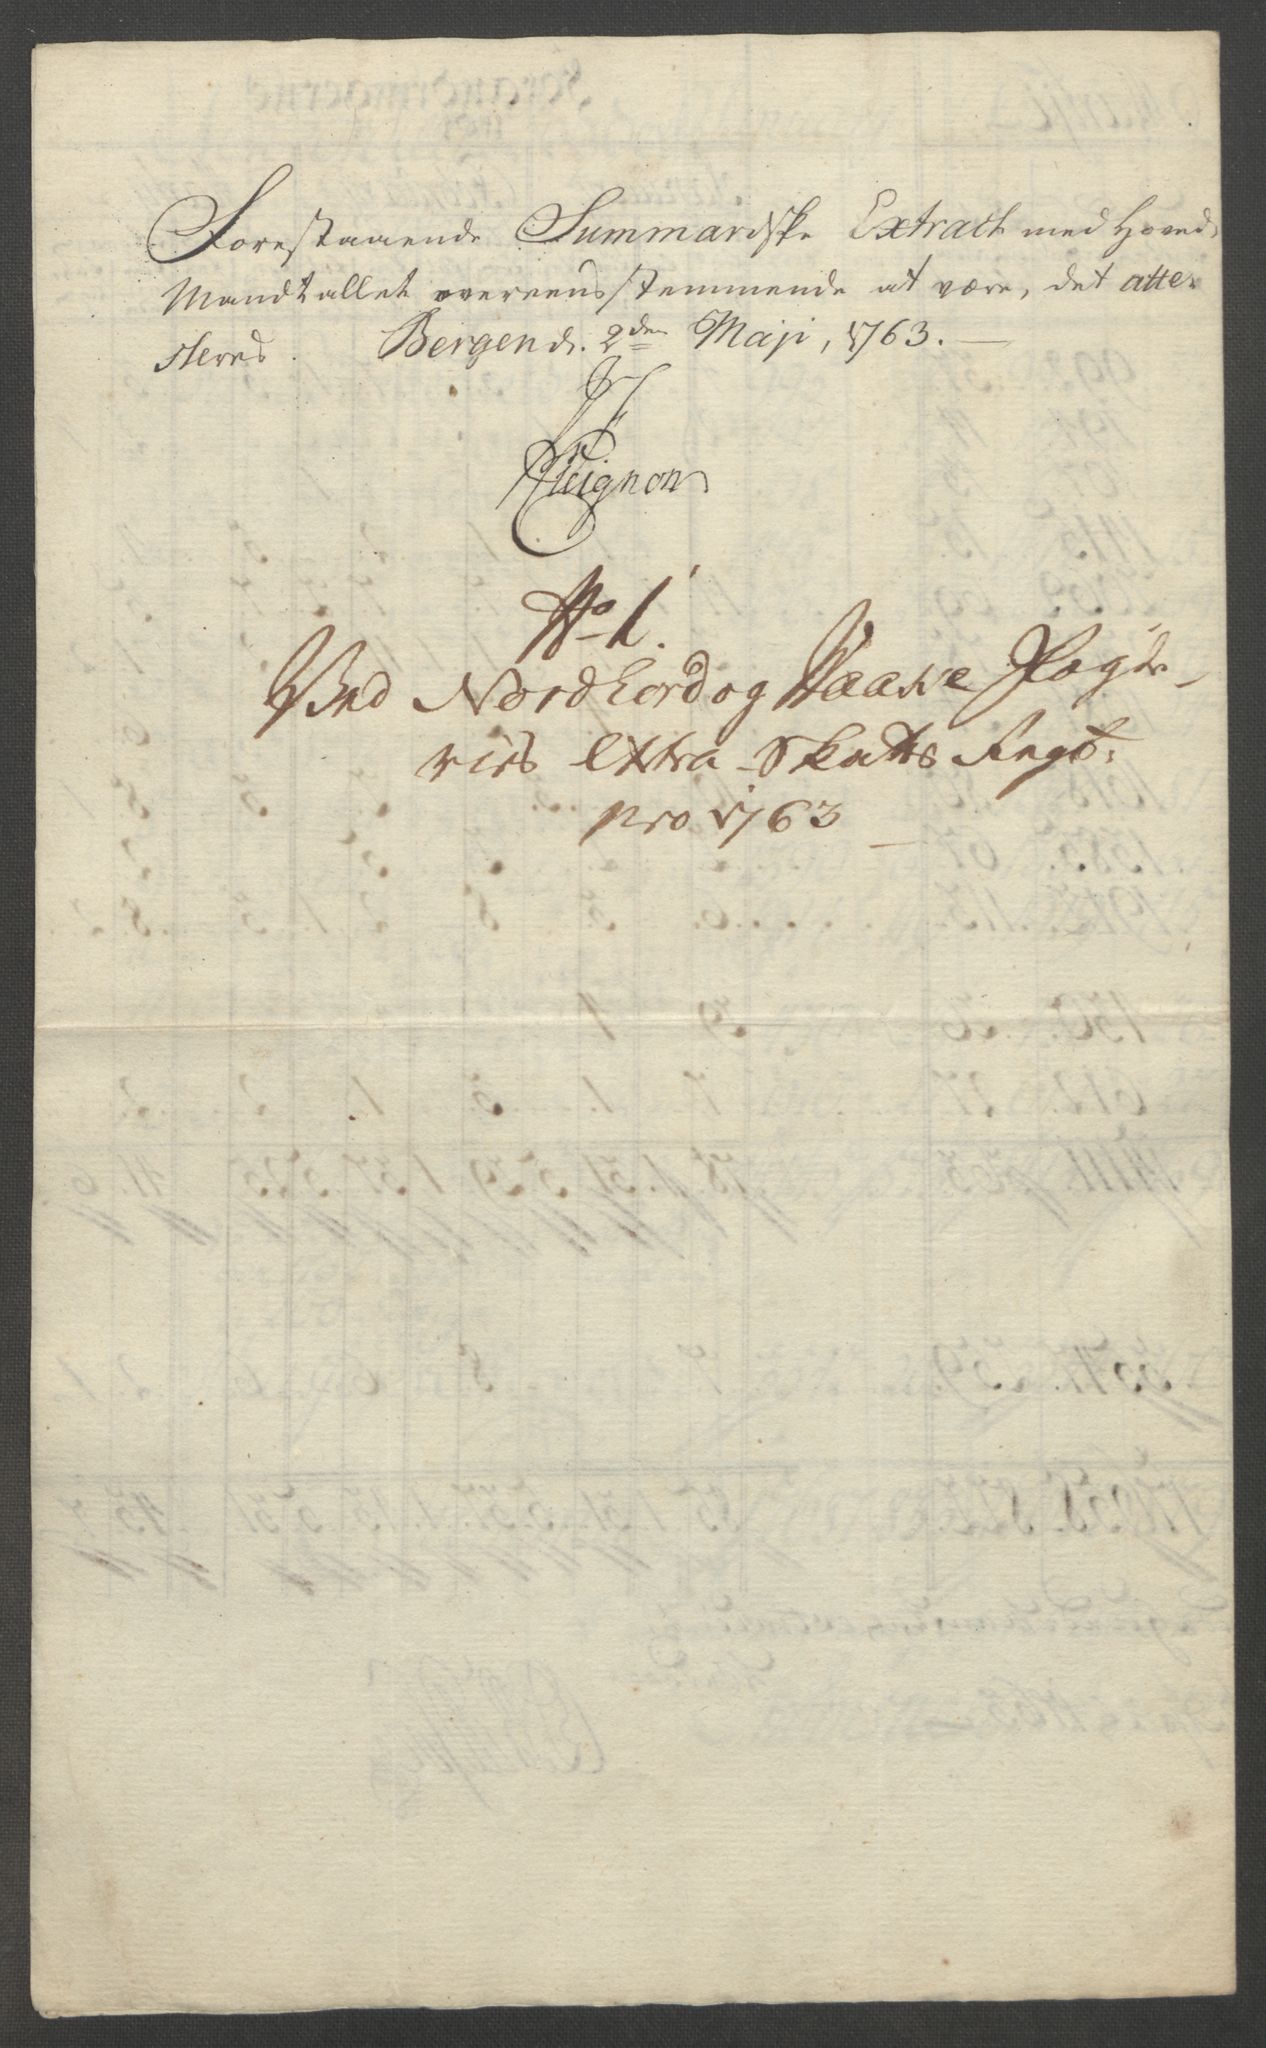 Forestaaende Summariske Extract med Hoved,
Mandtallet overeensstemmende at være, det atte-
steres. Bergen d. 2den Maji, 1763.
No 1.
Ved Nordhord og Waase Fogde-
ries Extra Skatts Regb:
pro 1763